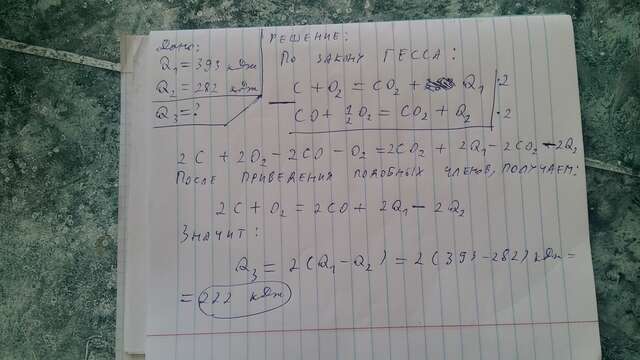 Дано:
Q₁ = 393 кДж
Q₂ = 282 кДж
Q₃ = ?
РЕШЕНИЕ:
ПО ЗАКОНУ ГЕССА:
C + O₂ = CO₂ + Q₁ | · 2
CO + ½O₂ = CO₂ + Q₂ | · 2
2C + 2O₂ - 2CO - O₂ = 2CO₂ + 2Q₁ - 2CO₂ - 2Q₂
ПОСЛЕ ПРИВЕДЕНИЯ ПОДОБНЫХ ЧЛЕНОВ, ПОЛУЧАЕМ:
2C + O₂ = 2CO + 2Q₁ - 2Q₂
ЗНАЧИТ:
Q₃ = 2(Q₁ - Q₂) = 2(393 - 282) кДж =
= 222 кДж